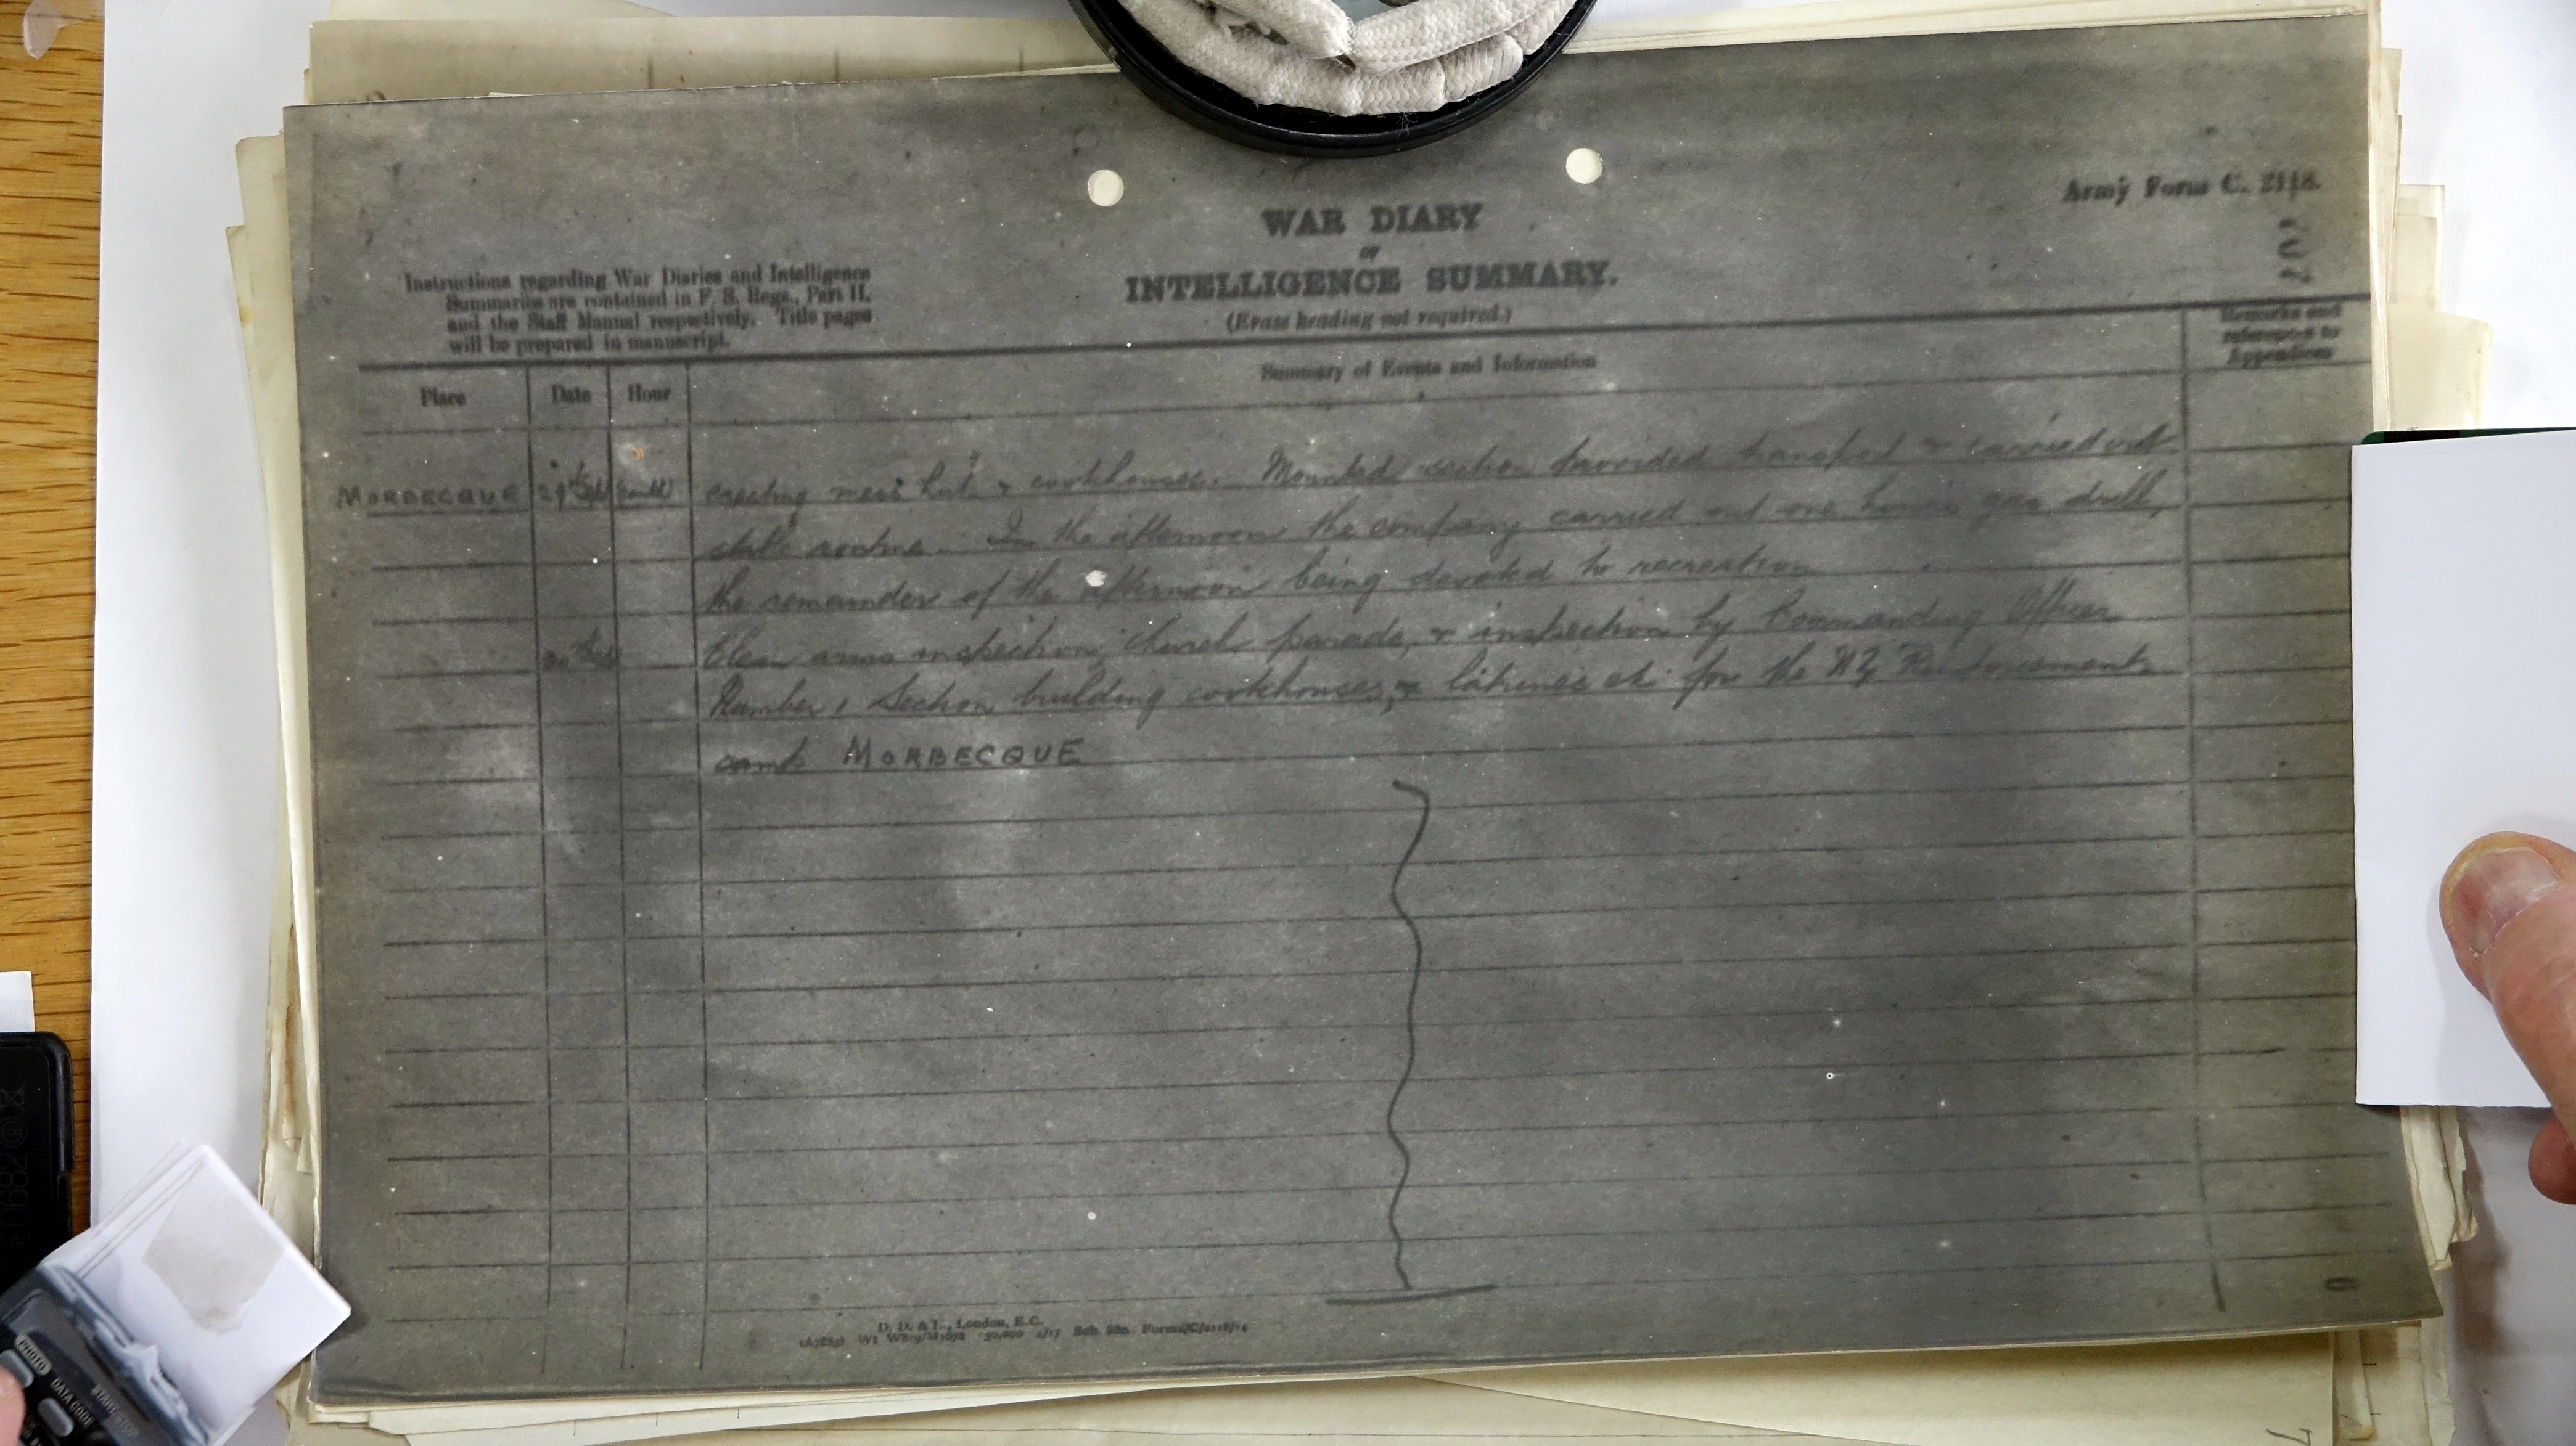 Army Form C. 2118.
707
WAR DIARY
or
INTELLIGENCE SUMMARY.
(Erase heading not required.)
Instructions regarding War Diaries and Intelligence
Summaries are contained in F. S. Regs., Part II.
and the Staff Manual respectively. Title pages
will be prepared in manuscript.
Place Date Hour Summary of Events and Information Remarks and references to Appendices
MORBECQUE 29th (contd) erecting mess hut & cookhouses. Mounted section provided transport & carried out
stable routine. In the afternoon the company carried out one hour's gas drill,
the remainder of the afternoon being devoted to recreation
30th Clean arms inspection, church parade, & inspection by Commanding Officer
Number 1 Section building cookhouses, & latrines etc for the NZ Reinforcements
camp MORBECQUE
D. D. & L., London, E.C.
(A7883) Wt W809/M1672 350,000 4/17 Sch. 52a Forms/C/2118/14
6
7
PHOTO
DATA CODE
START/STOP